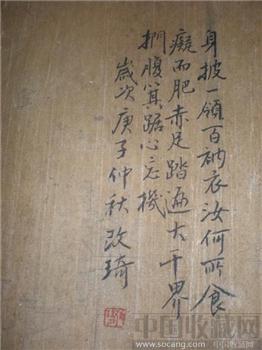 身披一領百衲衣汝何所食
癡而肥赤足踏遍大千界
捫腹箕踞心忘機
歲次庚子仲秋改琦
中国收藏网
www.socang.com